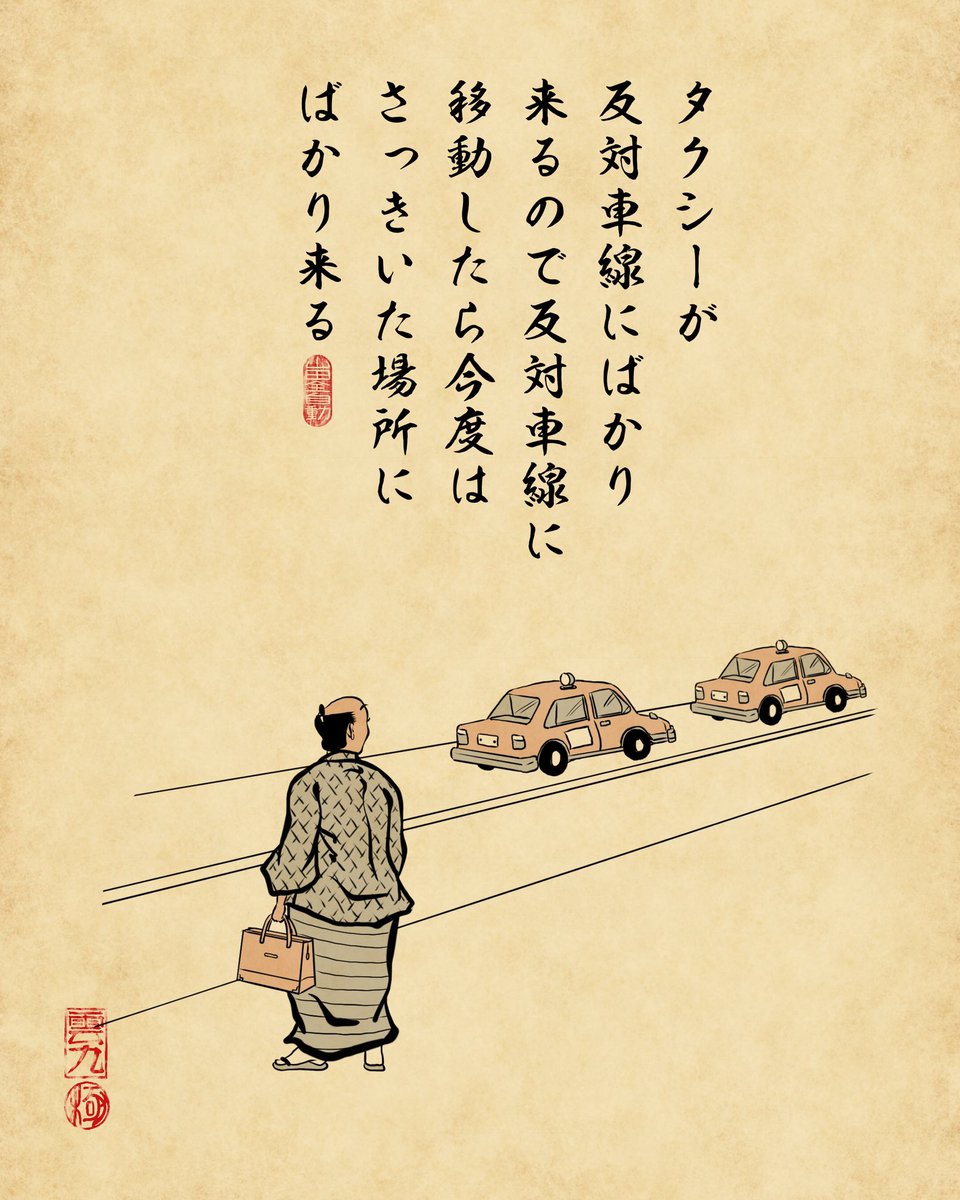 タクシーが
反対車線にばかり
来るので反対車線に
移動したら今度は
さっきいた場所に
ばかり来る